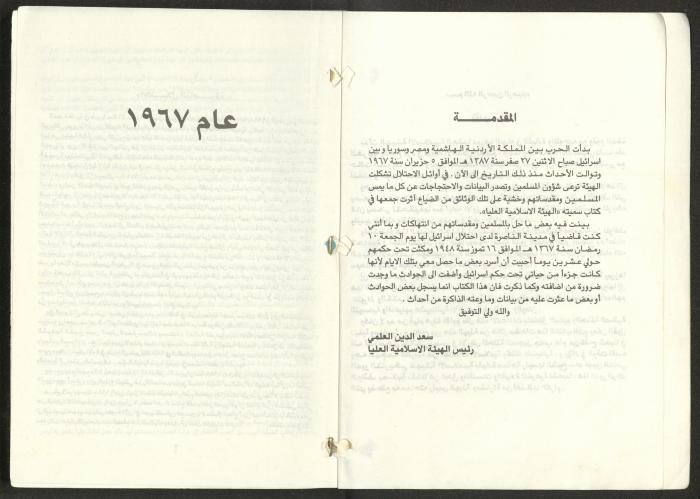 المقدمـــــــة
بدأت الحرب بين المملكة الأردنية الهاشمية ومصر وسوريا وبين
اسرائيل صباح الاثنين ٢٧ صفر سنة ١٣٨٧ هـ الموافق ٥ حزيران سنة ١٩٦٧
وتوالت الأحداث منذ ذلك التاريخ الى الآن . في أوائل الاحتلال تشكلت
الهيئة ترعى شؤون المسلمين وتصدر البيانات والاحتجاجات عن كل ما يمس
المسلمين ومقدساتهم وخشية على تلك الوثائق من الضياع آثرت جمعها في
كتاب سميته «الهيئة الاسلامية العليا».
بينت فيه بعض ما حل بالمسلمين ومقدساتهم من انتهاكات و بما أنني
كنت قاضياً في مدينة الناصرة لدى احتلال اسرائيل لها يوم الجمعة ١٠
رمضان سنة ١٣٦٧ هـ الموافق ١٦ تموز سنة ١٩٤٨ ومكثت تحت حكمهم
حولي عشرين يوماً أحببت أن أسرد بعض ما حصل معي بتلك الايام لأنها
كانت جزءاً من حياتي تحت حكم اسرائيل وأضفت الى الحوادث ما وجدت
ضرورة من اضافته وكما ذكرت فان هذا الكتاب انما يسجل بعض الحوادث
أو بعض ما عثرت عليه من بيانات وما وعته الذاكرة من أحداث .
والله ولي التوفيق
سعد الدين العلمي
رئيس الهيئة الاسلامية العليا
عام ١٩٦٧